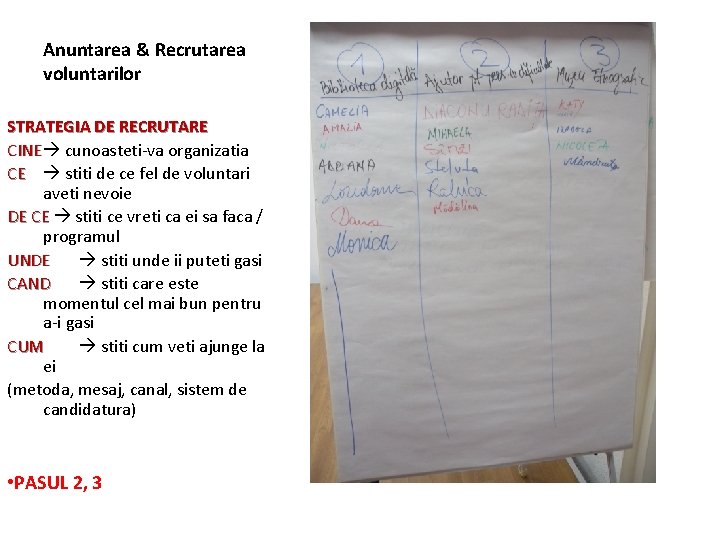 Anuntarea & Recrutarea
voluntarilor
STRATEGIA DE RECRUTARE
CINE→ cunoasteti-va organizatia
CE → stiti de ce fel de voluntari
aveti nevoie
DE CE → stiti ce vreti ca ei sa faca /
programul
UNDE → stiti unde ii puteti gasi
CAND → stiti care este
momentul cel mai bun pentru
a-i gasi
CUM → stiti cum veti ajunge la
ei
(metoda, mesaj, canal, sistem de
candidatura)
•PASUL 2, 3
1
Biblioteca digitală
CAMELIA
AMALIA
ADRIANA
Loredana
Dana
Monica
2
Ajutor pt pers cu dizabilități
MIHAELA
Steluta
Raluca
Mădălina
3
Muzeu Etnografic
KATY
IZABELA
NICOLETA